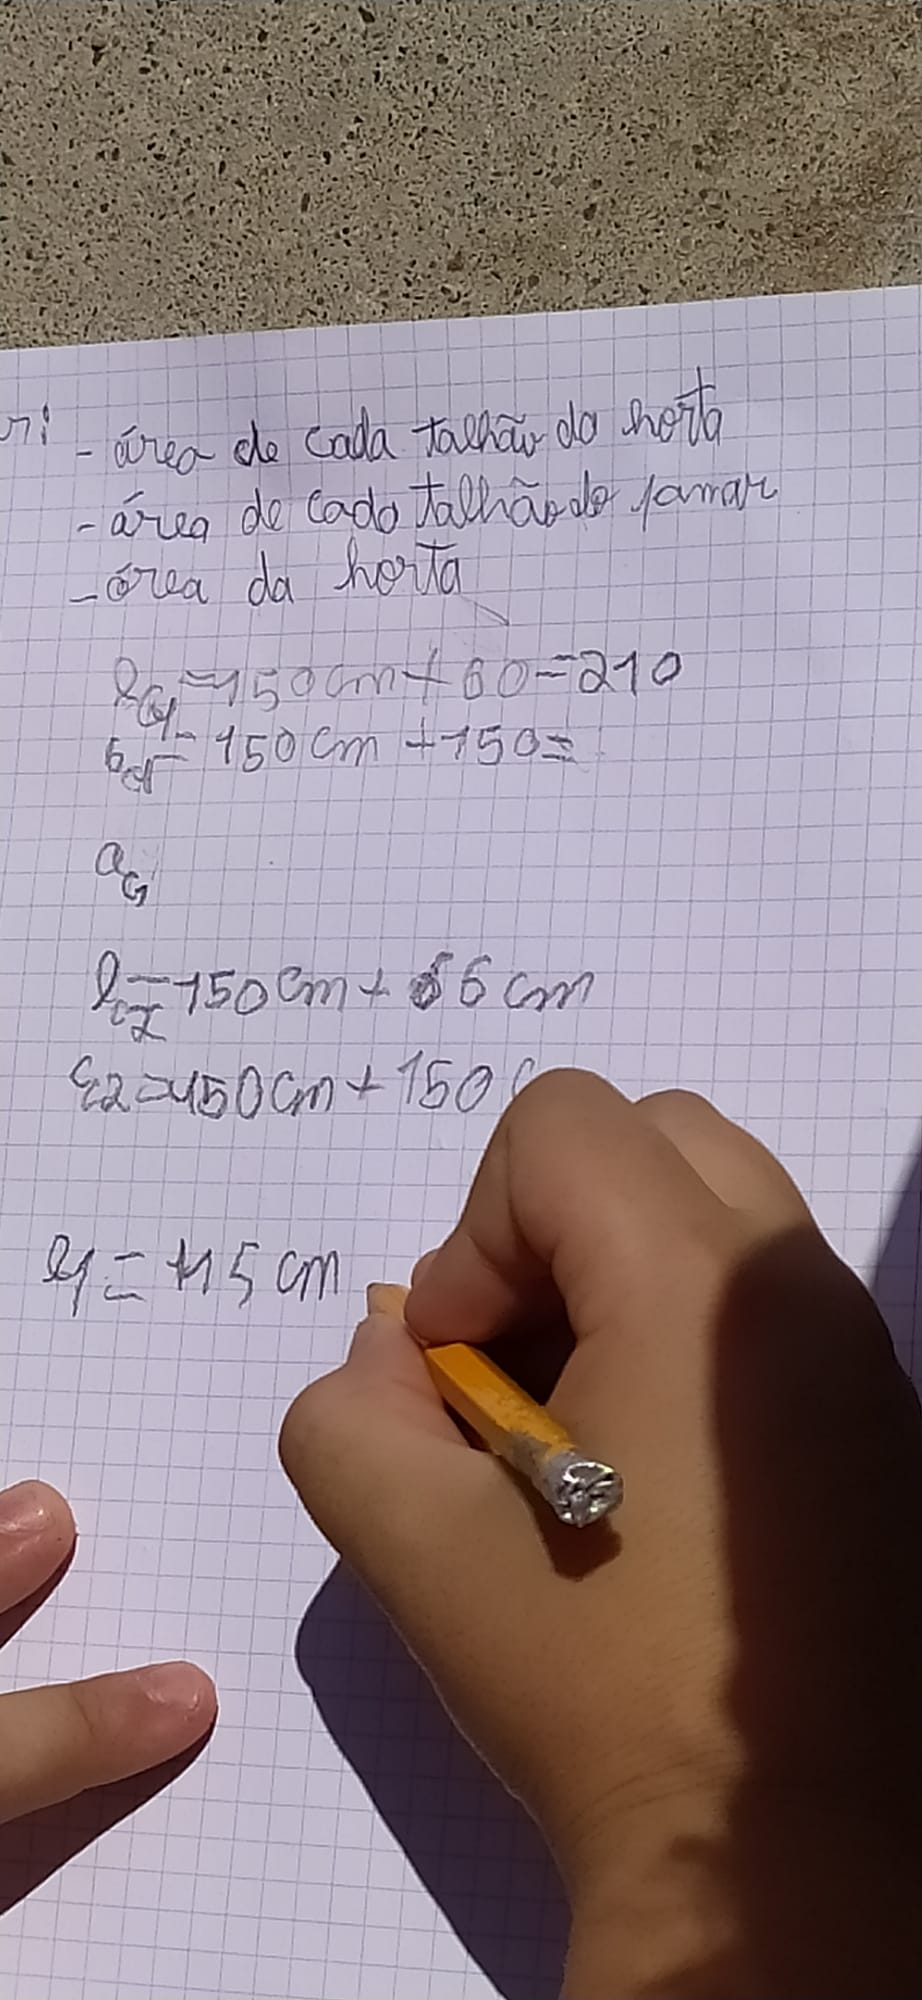 - área de cada talhão da horta
- área de cado talhão do pomar
- área da horta
l = 150 cm + 60 = 210
= 150 cm + 150 =
a
l = 150 cm + 66 cm
c2 = 150 cm + 150
= 115 cm